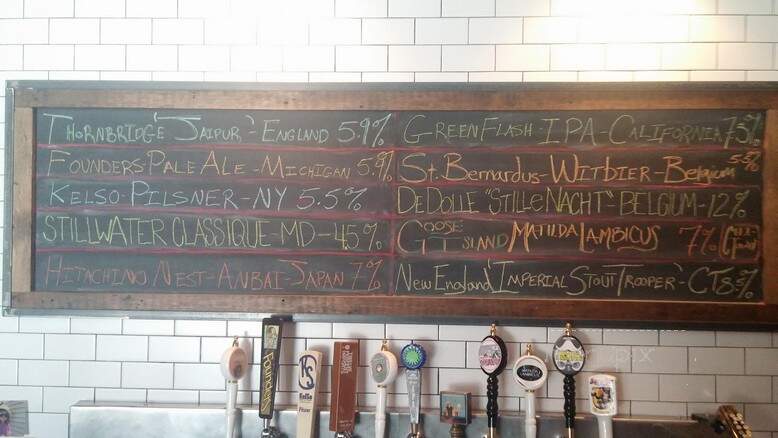 THORNBRIDGE "JAIPUR" - ENGLAND 5.9%
FOUNDERS PALE ALE - MICHIGAN 5.9%
KELSO PILSNER - NY 5.5%
STILLWATER CLASSIQUE - MD - 4.5%
HITACHINO NEST - ANBAI - JAPAN 7%
GREEN FLASH - IPA - CALIFORNIA 7.3%
ST. BERNARDUS - WITBIER - BELGIUM 5.5%
DE DOLLE "STILLE NACHT" - BELGIUM - 12%
GOOSE ISLAND MATILDA LAMBICUS 7%
NEW ENGLAND "IMPERIAL STOUT TROOPER" - CT 8.5%
FOUNDERS
KS
KelSo